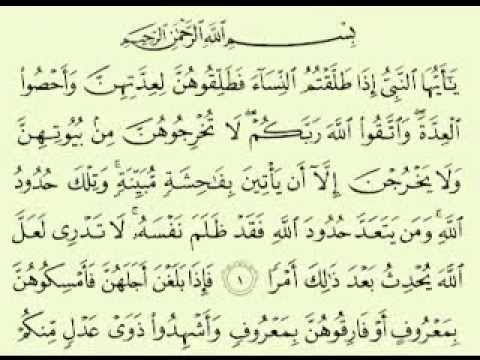 بِسْمِ ٱللَّهِ ٱلرَّحْمَٰنِ ٱلرَّحِيمِ
يَٰٓأَيُّهَا ٱلنَّبِىُّ إِذَا طَلَّقْتُمُ ٱلنِّسَآءَ فَطَلِّقُوهُنَّ لِعِدَّتِهِنَّ وَأَحْصُوا۟
ٱلْعِدَّةَ ۖ وَٱتَّقُوا۟ ٱللَّهَ رَبَّكُمْ ۖ لَا تُخْرِجُوهُنَّ مِنۢ بُيُوتِهِنَّ
وَلَا يَخْرُجْنَ إِلَّآ أَن يَأْتِينَ بِفَٰحِشَةٍ مُّبَيِّنَةٍ ۚ وَتِلْكَ حُدُودُ
ٱللَّهِ ۚ وَمَن يَتَعَدَّ حُدُودَ ٱللَّهِ فَقَدْ ظَلَمَ نَفْسَهُۥ ۚ لَا تَدْرِى لَعَلَّ
ٱللَّهَ يُحْدِثُ بَعْدَ ذَٰلِكَ أَمْرًا ١ فَإِذَا بَلَغْنَ أَجَلَهُنَّ فَأَمْسِكُوهُنَّ
بِمَعْرُوفٍ أَوْ فَارِقُوهُنَّ بِمَعْرُوفٍ وَأَشْهِدُوا۟ ذَوَىْ عَدْلٍ مِّنكُمْ